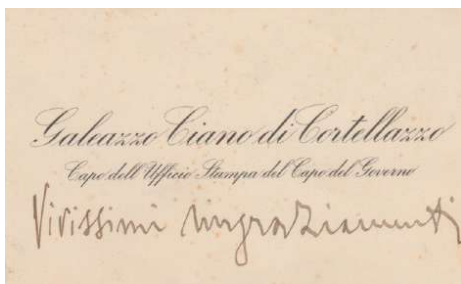 Galeazzo Ciano di Cortellazzo
Capo dell'Ufficio Stampa del Capo del Governo
Vivissimi ringraziamenti